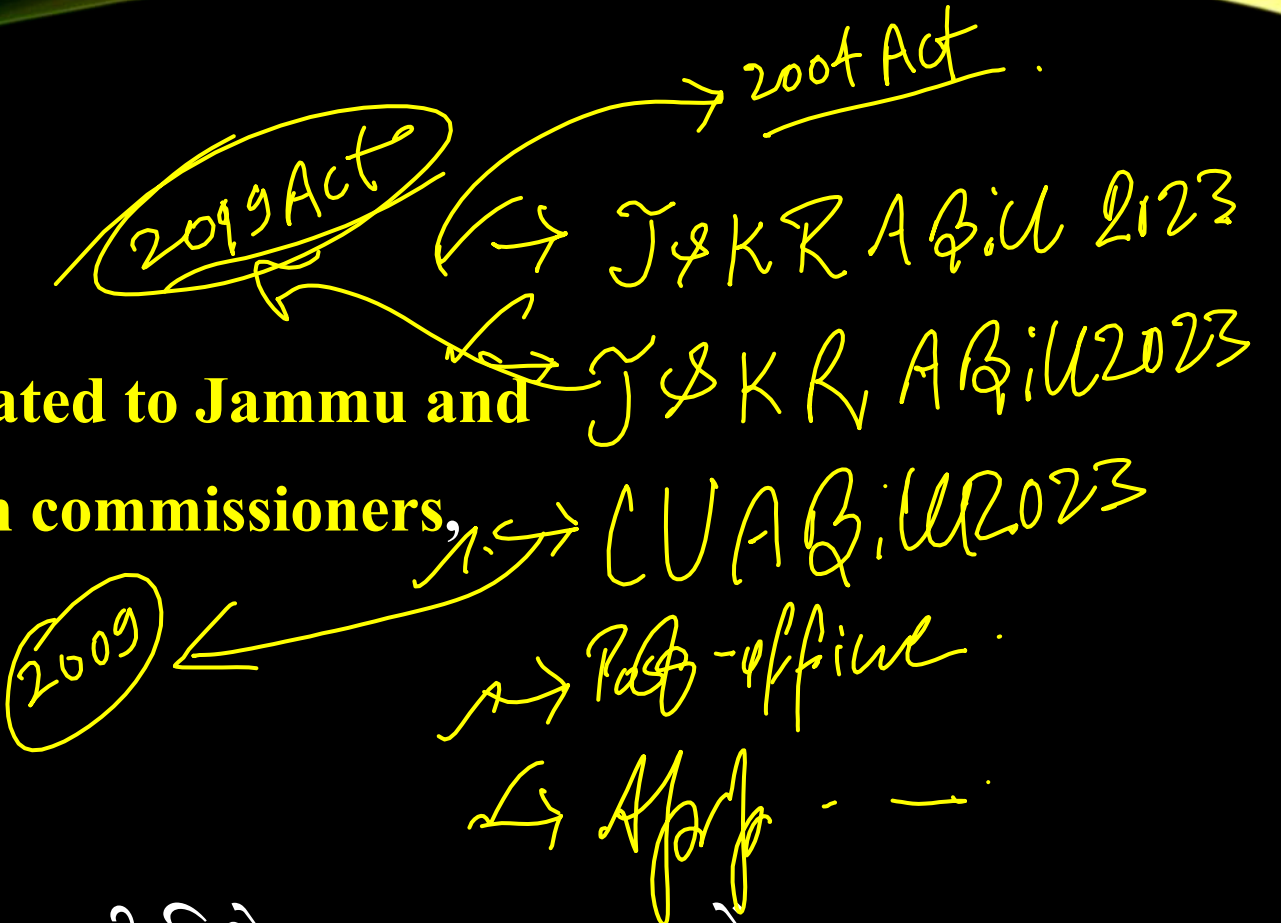 2004 Act.
2019 Act
J&K R A Bill 2023
J&K R A Bill 2023
ated to Jammu and
n commissioners,
CUA Bill 2023
2009
Post-office.